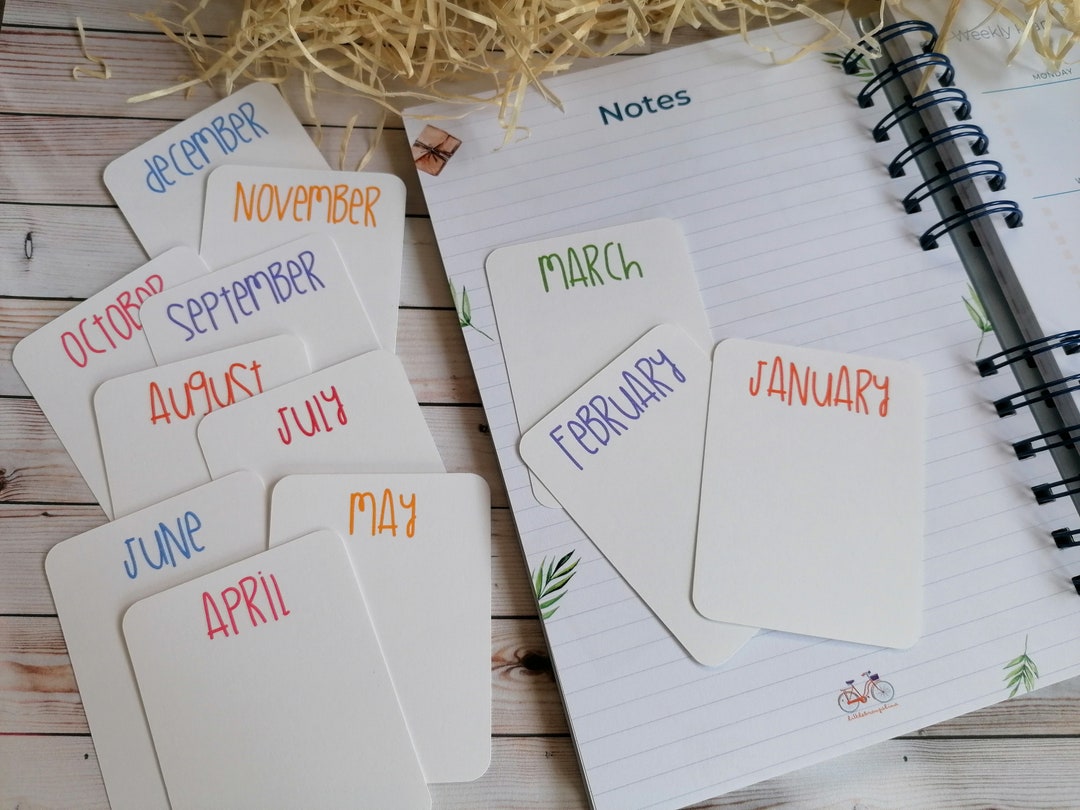 DECEMBER
NOVEMBER
OCTOBER
SEPTEMBER
AUGUST
JULY
JUNE
MAY
APRIL
Notes
MARCH
FEBRUARY
JANUARY
Weekly
MONDAY